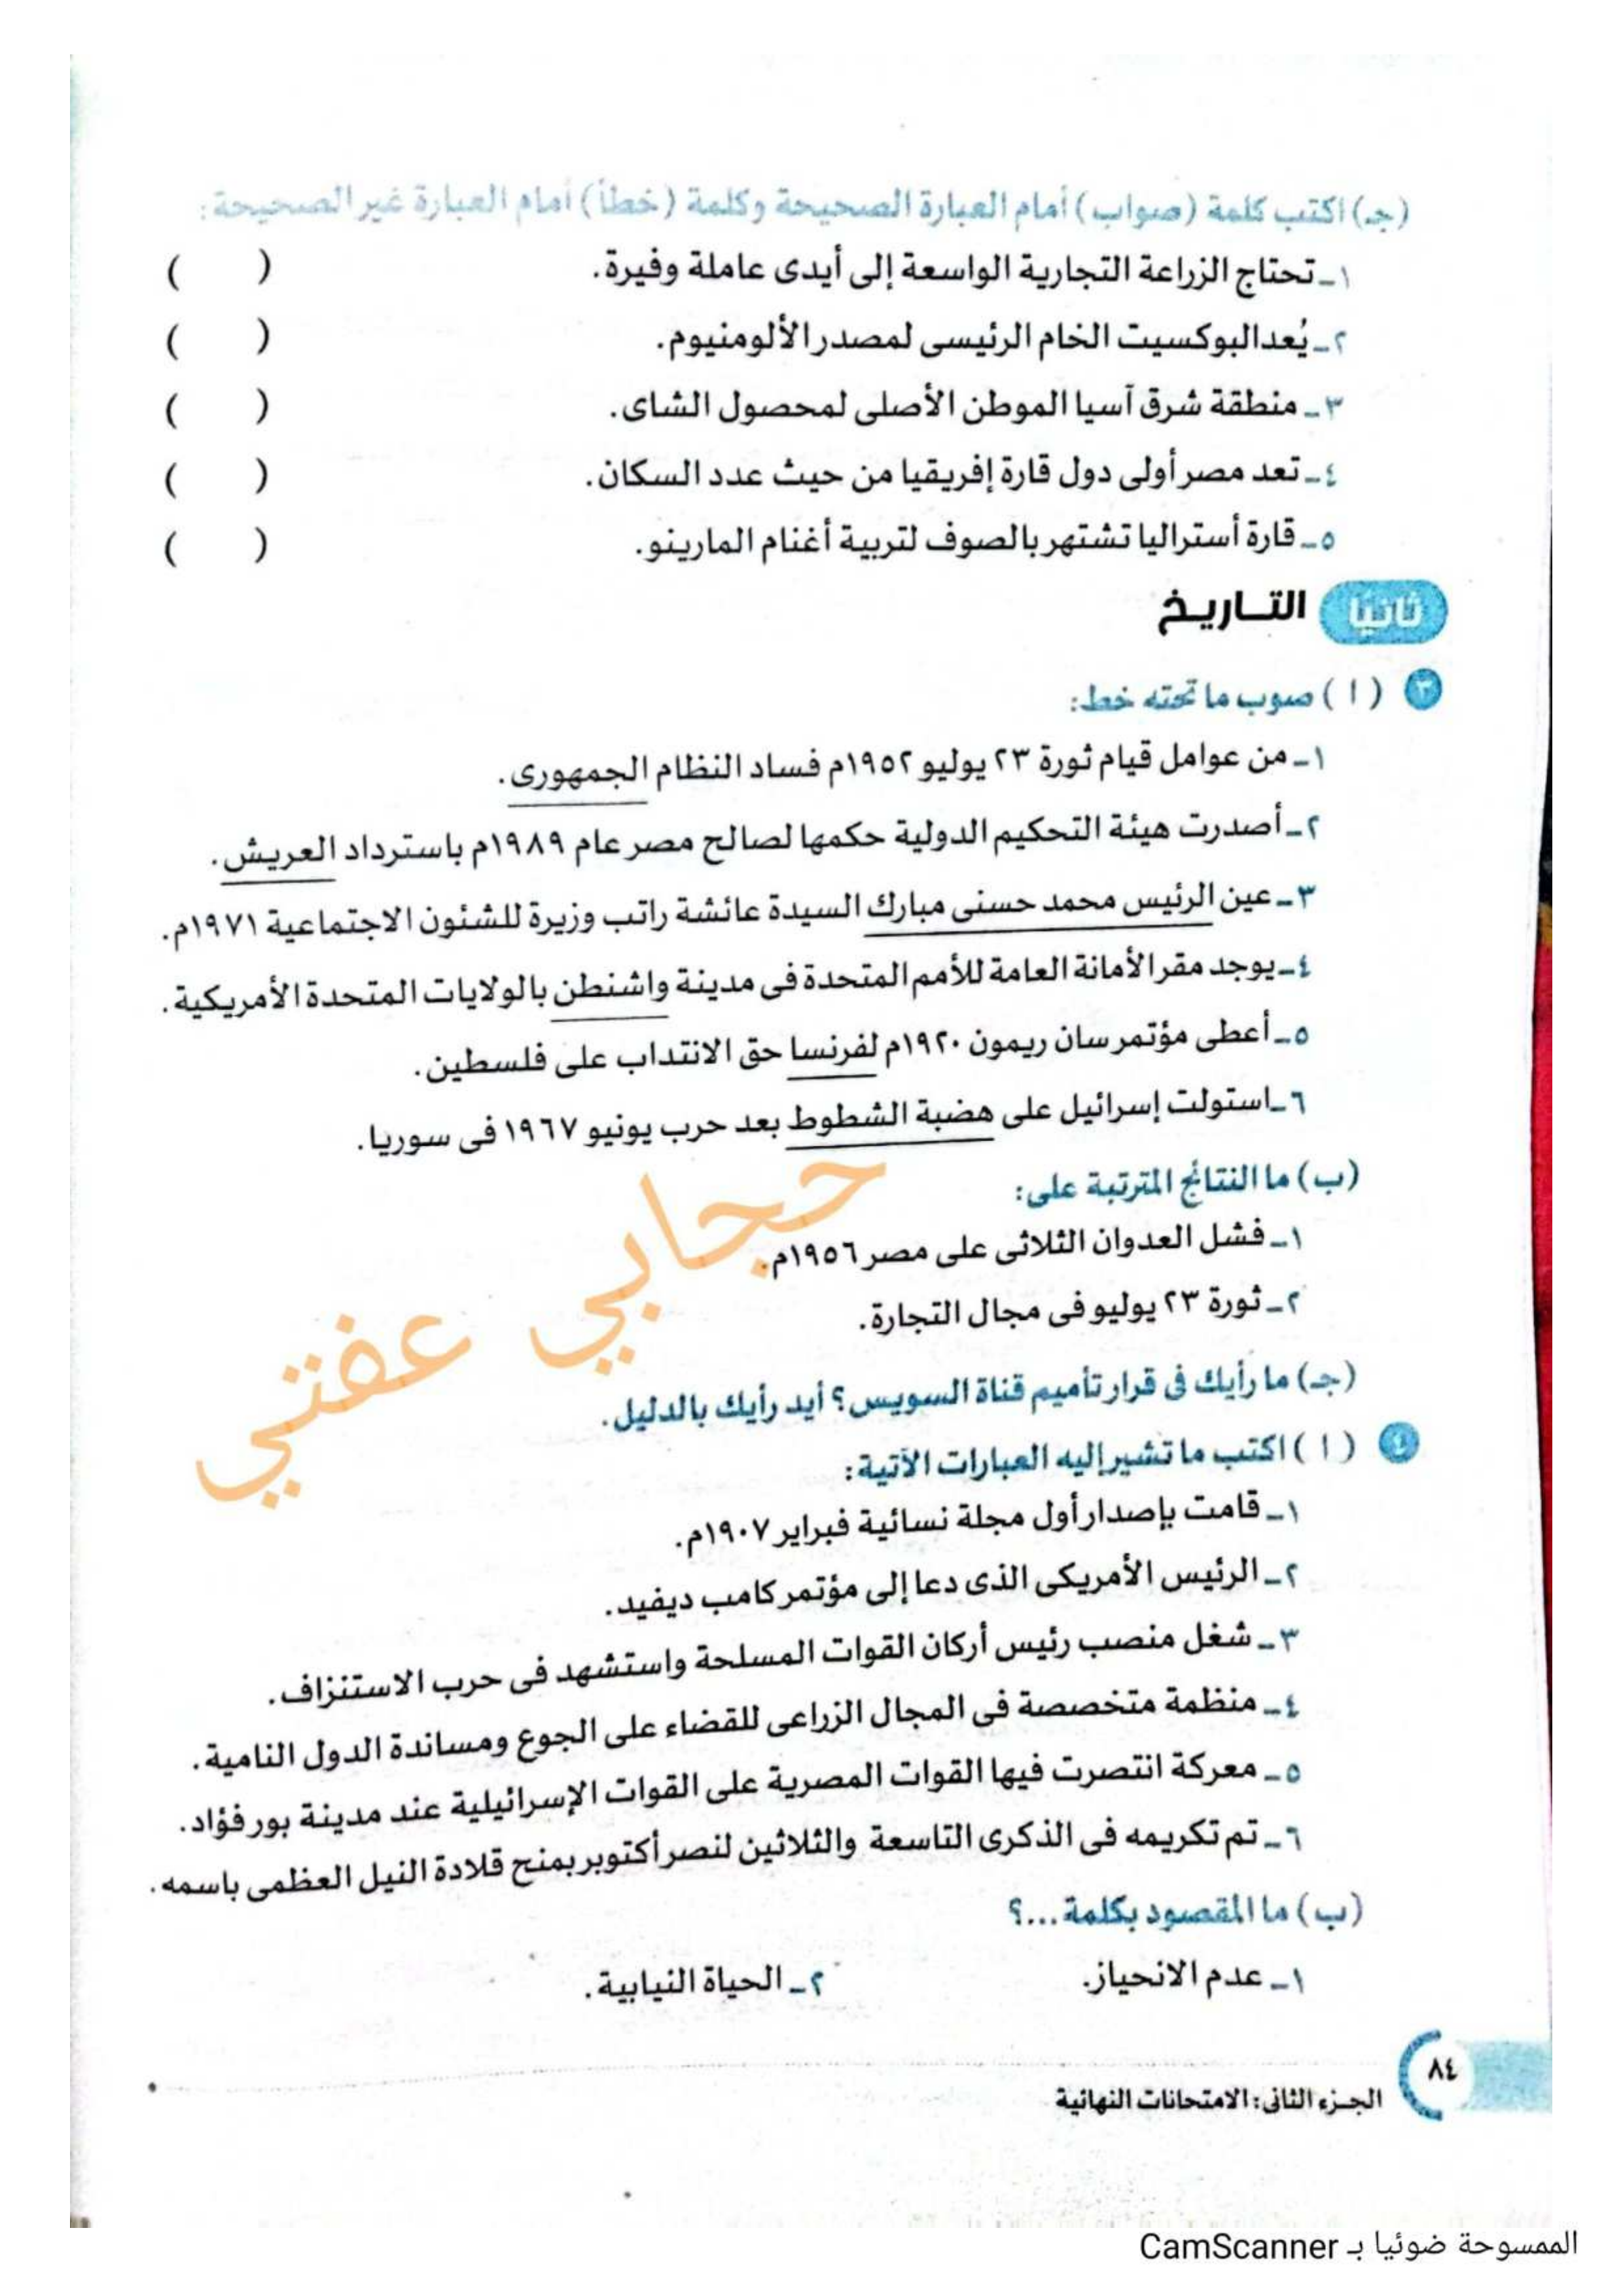 (جـ) اكتب كلمة (صواب) أمام العبارة الصحيحة وكلمة (خطأ) أمام العبارة غير الصحيحة:
١ـ تحتاج الزراعة التجارية الواسعة إلى أيدى عاملة وفيرة. ( )
٢ـ يُعد البوكسيت الخام الرئيسى لمصدر الألومنيوم. ( )
٣ـ منطقة شرق آسيا الموطن الأصلى لمحصول الشاى. ( )
٤ـ تعد مصر أولى دول قارة إفريقيا من حيث عدد السكان. ( )
٥ـ قارة أستراليا تشتهر بالصوف لتربية أغنام المارينو. ( )
ثانيًا التـاريـخ
٣ (ا) صوب ما تحته خط:
١ـ من عوامل قيام ثورة ٢٣ يوليو ١٩٥٢م فساد النظام الجمهورى.
٢ـ أصدرت هيئة التحكيم الدولية حكمها لصالح مصر عام ١٩٨٩م باسترداد العريش.
٣ـ عين الرئيس محمد حسنى مبارك السيدة عائشة راتب وزيرة للشئون الاجتماعية ١٩٧١م.
٤ـ يوجد مقر الأمانة العامة للأمم المتحدة فى مدينة واشنطن بالولايات المتحدة الأمريكية.
٥ـ أعطى مؤتمر سان ريمون ١٩٢٠م لفرنسا حق الانتداب على فلسطين.
٦ـ استولت إسرائيل على هضبة الشطوط بعد حرب يونيو ١٩٦٧ فى سوريا.
(ب) ما النتائج المترتبة على:
١ـ فشل العدوان الثلاثى على مصر ١٩٥٦م.
٢ـ ثورة ٢٣ يوليو فى مجال التجارة.
حجابي عفتي
(جـ) ما رأيك فى قرار تأميم قناة السويس؟ أيد رأيك بالدليل.
٤ (ا) اكتب ما تشير إليه العبارات الآتية:
١ـ قامت بإصدار أول مجلة نسائية فبراير ١٩٠٧م.
٢ـ الرئيس الأمريكى الذى دعا إلى مؤتمر كامب ديفيد.
٣ـ شغل منصب رئيس أركان القوات المسلحة واستشهد فى حرب الاستنزاف.
٤ـ منظمة متخصصة فى المجال الزراعى للقضاء على الجوع ومساندة الدول النامية.
٥ـ معركة انتصرت فيها القوات المصرية على القوات الإسرائيلية عند مدينة بور فؤاد.
٦ـ تم تكريمه فى الذكرى التاسعة والثلاثين لنصر أكتوبر بمنح قلادة النيل العظمى باسمه.
(ب) ما المقصود بكلمة ...؟
١ـ عدم الانحياز. ٢ـ الحياة النيابية.
٨٤
الجـزء الثانى: الامتحانات النهائية
الممسوحة ضوئيا بـ CamScanner